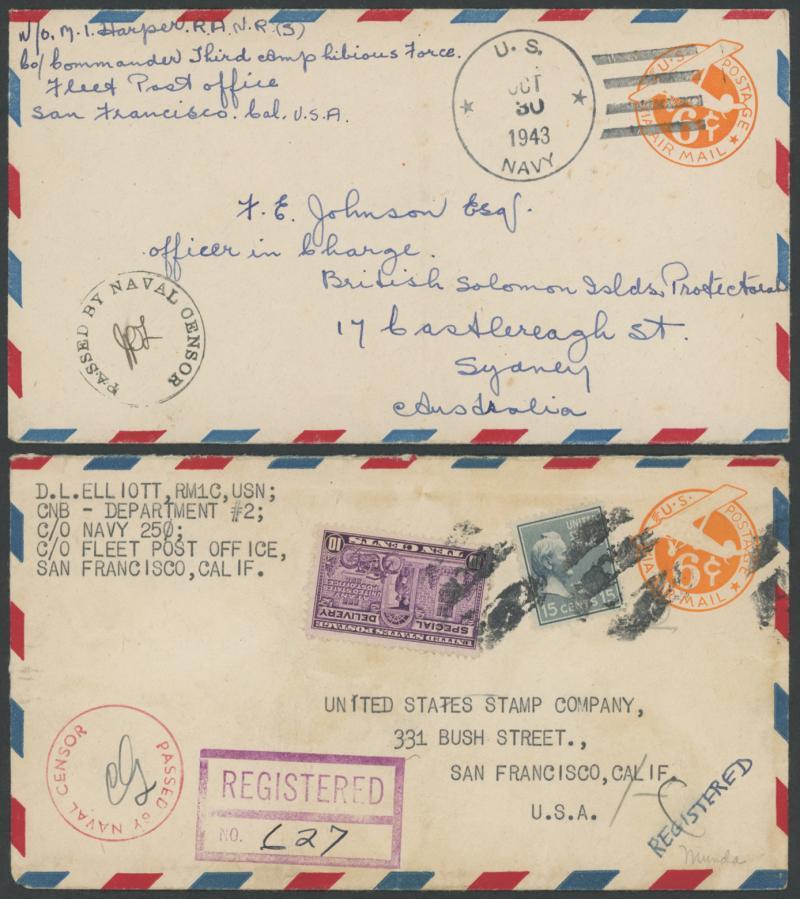 W/o. M. I. Harper. R.A.N.R (S)
Co/ Commander Third amphibious Force.
Fleet Post office
San Francisco. Cal. U.S.A.
U.S.
OCT
30
1943
NAVY
U.S. POSTAGE
6¢
VIA AIR MAIL
F. E. Johnson Esq.
officer in Charge.
British Solomon Islds. Protectorate
17 Castlereagh St.
Sydney
Australia
PASSED BY NAVAL CENSOR
D.L.ELLIOTT,RM1C,USN;
CNB - DEPARTMENT #2;
C/O NAVY 250;
C/O FLEET POST OFFICE,
SAN FRANCISCO,CALIF.
UNITED STATES POSTAGE
SPECIAL
DELIVERY
AT ANY
UNITED STATES
POST OFFICE
10 TEN CENTS 10
UNITED
15 CENTS 15
U.S. POSTAGE
6¢
VIA AIR MAIL
UNITED STATES STAMP COMPANY,
331 BUSH STREET.,
SAN FRANCISCO,CALIF.
U.S.A.
PASSED BY NAVAL CENSOR
REGISTERED
NO. L27
REGISTERED
Munda